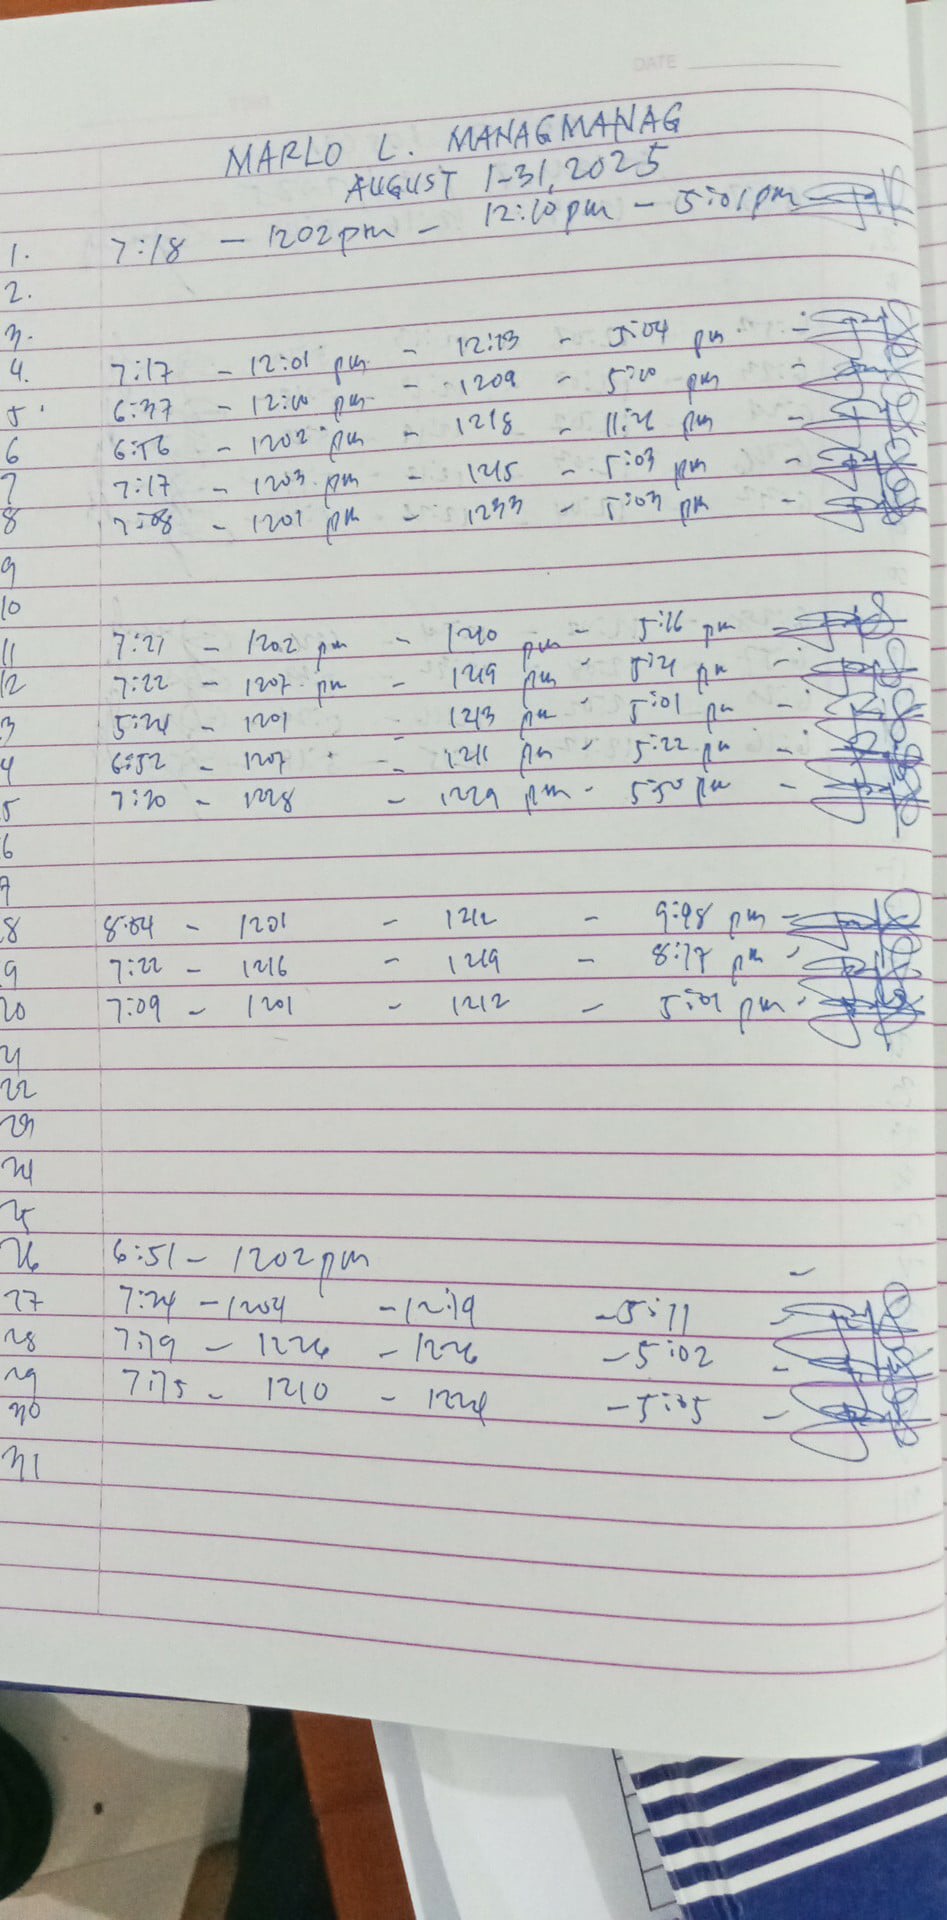 DATE
MARLO L. MANAGMANAG
AUGUST 1-31, 2025
1. 7:18 - 1202 pm - 12:10 pm - 5:01 pm
2.
3.
4. 7:17 - 12:01 pm - 12:13 - 5:04 pm
5. 6:37 - 12:00 pm - 1209 - 5:20 pm
6 6:56 - 1202 pm - 1218 - 11:26 pm
7 7:17 - 1203 pm - 1215 - 5:03 pm
8 7:08 - 1201 pm - 1233 - 5:03 pm
9
10
11 7:21 - 1202 pm - 1210 pm - 5:16 pm
12 7:22 - 1207 pm - 1219 pm - 5:21 pm
3 5:24 - 1201 - 1213 pm - 5:01 pm
4 6:52 - 1207 - 1211 pm - 5:22 pm
5 7:20 - 1228 - 1229 pm - 5:50 pm
6
7
8 8:04 - 1201 - 1212 - pm -
9 7:22 - 1216 - 1219 - 8:17 pm
20 7:09 - 1201 - 1212 - 5:01 pm
21
22
23
24
25
26 6:51 - 1202 pm -
27 7:24 - 1204 - 12:19 - 5:11
28 7:19 - 1226 - 1226 - 5:02
29 7:15 - 1210 - 1224 - 5:05
30
31